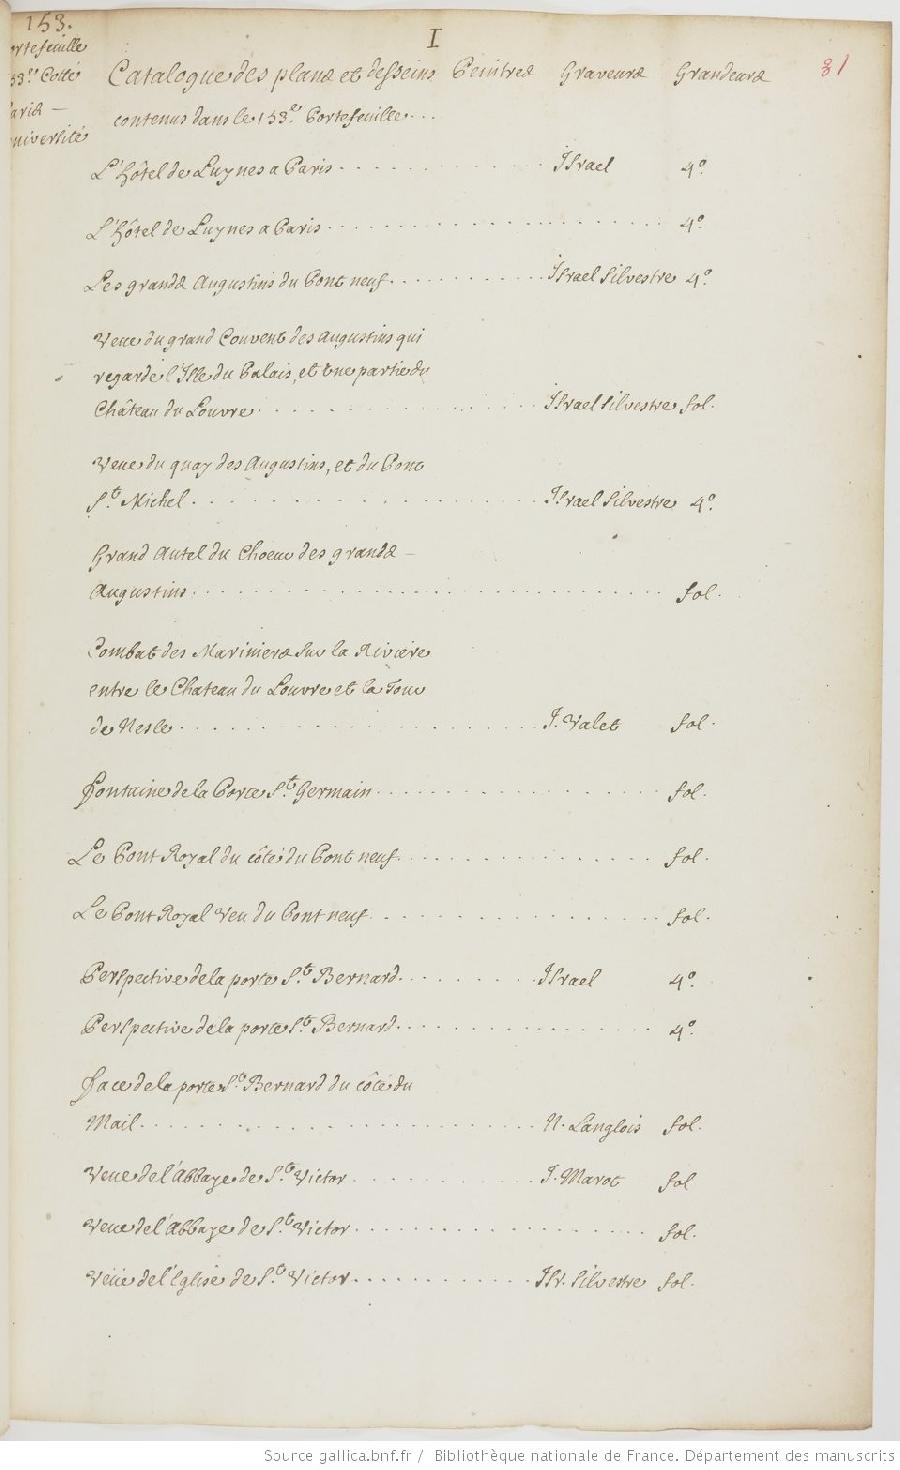 153.
I
81
ortefeuille
53.e Cotté
Paris —
université
Catalogue des plans et desseins Peintres Graveurs Grandeurs
contenus dans le 153.e Portefeuille...
L'Hôtel de Luynes a Paris . . . . . . Israel 4.o
L'Hôtel de Luynes a Paris . . . . . . 4.o
Les grands Augustins du Pont neuf . . . . . . Israel Silvestre 4.o
Veue du grand Couvent des Augustins qui
regarde l'Isle du Palais, et une partie du
Château du Louvre . . . . . . Israel Silvestre fol.
Veue du quay des Augustins, et du Pont
St. Michel . . . . . . Israel Silvestre 4.o
Grand Autel du Choeur des grands —
Augustins . . . . . . fol.
Combat des Mariniers sur la Riviere
entre le Chateau du Louvre et la Tour
de Nesle . . . . . . J. Valet fol.
Fontaine de la Porte St. Germain . . . . . . fol.
Le Pont Royal du côté du Pont neuf . . . . . . fol.
Le Pont Royal Veu du Pont neuf . . . . . . fol.
Perspective de la porte St. Bernard . . . . . . Israel 4.o
Perspective de la porte St. Bernard . . . . . . 4.o
Face de la porte St. Bernard du côté du
Mail . . . . . . N. Langlois fol.
Veue de l'Abbaye de St. Victor . . . . . . J. Marot fol
Veue de l'Abbaye de St. Victor . . . . . . fol.
Veüe de l'Eglise de St. Victor . . . . . . Isr. Silvestre fol.
Source gallica.bnf.fr / Bibliothèque nationale de France. Département des manuscrits